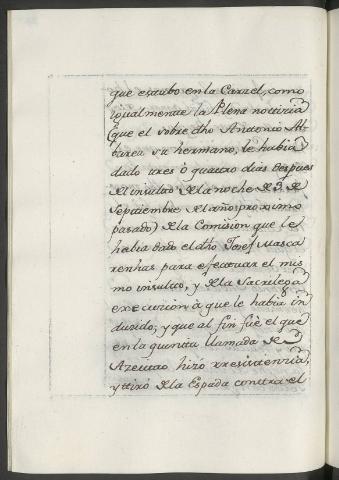 que estubo en la Carzel, como
igualmente la Plena noticia
(que el sobre dho Antonio Al-
barez su hermano, le habia
dado tres ô quatro dias despues
del insulto de la noche de 3 de
Septiembre del año proximo
pasado) de la Comision que le
habia dado el dho Josef Masca
renhas para efectuar el mis
mo insulto, y de la Sacrilega
execucion à que le habia in
ducido; y que al fin fuè el que
en la quinta llamada de
Azeitao hizó rresistencia
y ttiró de la Espada contra el